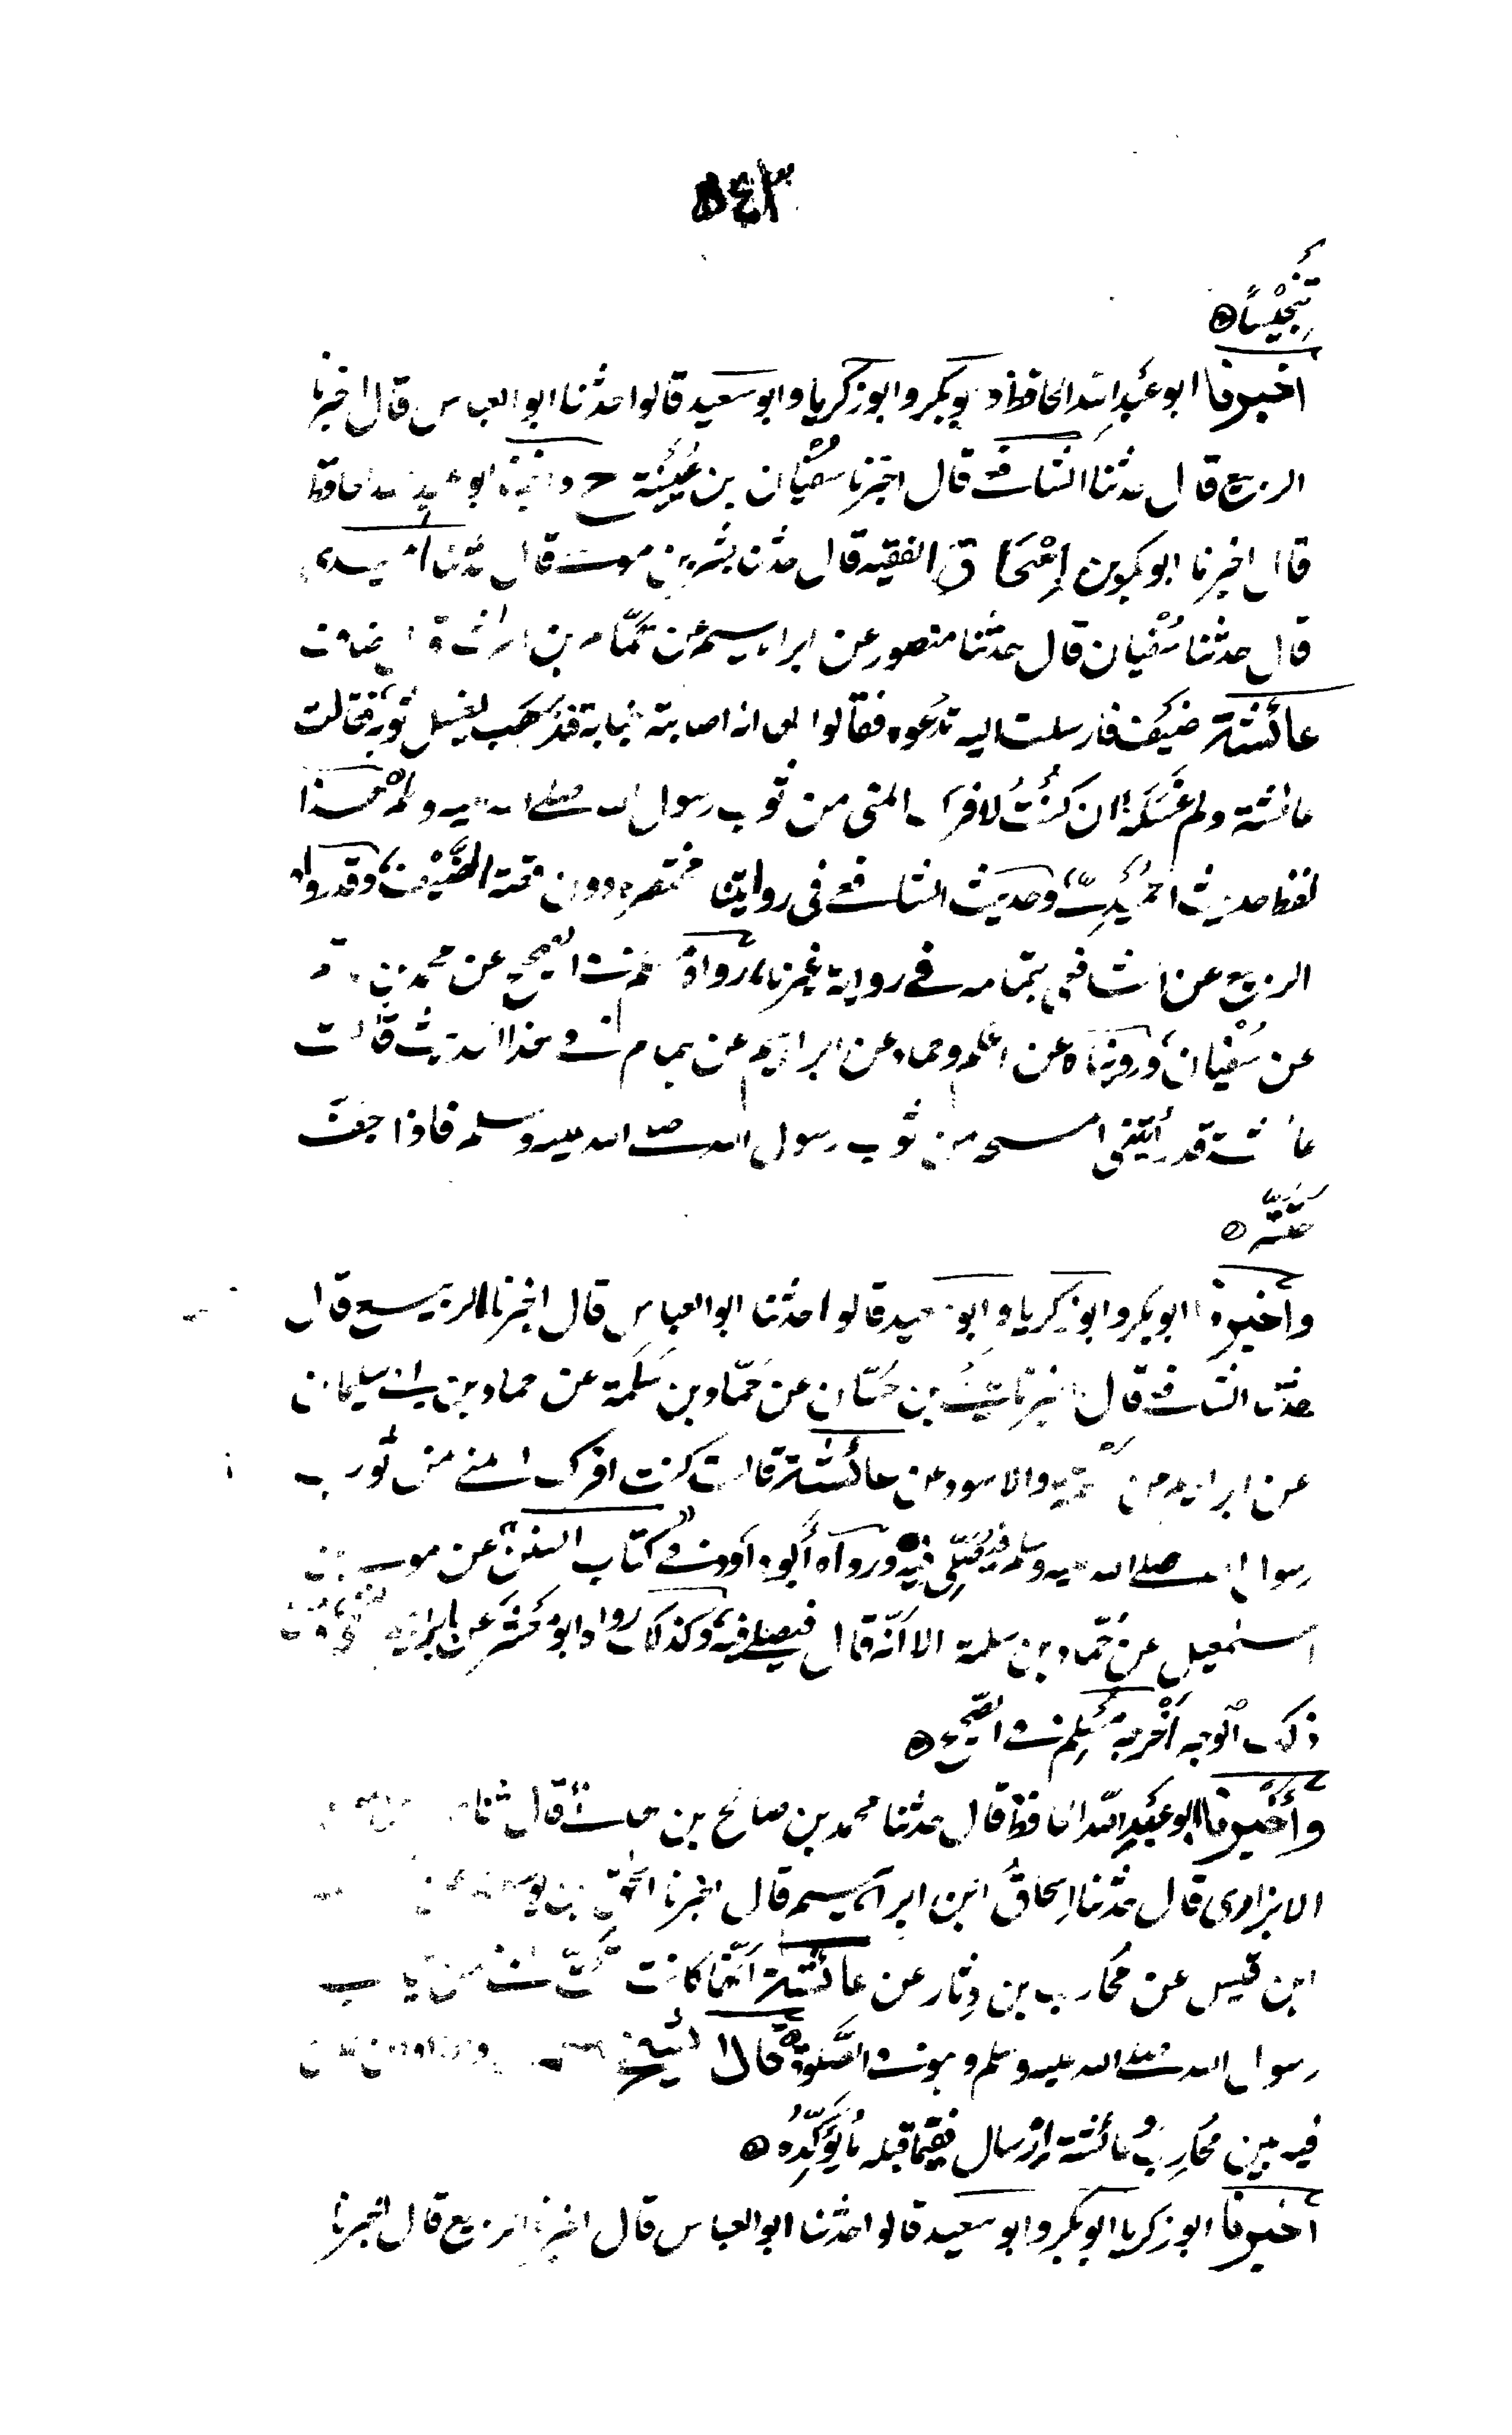 ٥٤٣
تنجيسًا
أخبرنا ابو عبد الله الحافظ و بو بكر وابو زكريا وابو سعيد قالوا حدثنا ابو العباس قال اخبرنا
الربيع قال حدثنا الشافعي قال اخبرنا سفيان بن عيينة ح واخبرنا ابو عبد الله الحافظ
قال اخبرنا ابو بكر بن إسْحَاق الفقيه قال حدثنا بشر بن موسى قال حدثنا الحميدي
قال حدثنا سُفْيان قال حدثنا منصور عن ابراهيم عن همّام بن الحارث قال ضاف
عائشة ضيف فارسلت اليه تدعوه فقالوا لها انه اصابته جنابة فذهب لغسل ثوبه فقالت
عائشة ولم غسله ان كنتُ لافرك المني من ثوب رسول الله صلى الله عليه وسلم هذا
لفظ حديث الحميدي وحديث الشافعي في روايتنا مختصرة دون قصة الضيف وقد رواه
الربيع عن الشافعي بتمامه في رواية غيرنا رواه مسلم في الصحيح عن محمد بن
عن سُفْيان ورويناه عن الحكم وحماد عن ابراهيم عن همام في هذا الحديث قالت
عائشة قد رأيتني امسحه من ثوب رسول الله صلى الله عليه وسلم فاذا جف
حتته
وأخبرنا ابو بكر وابو زكريا وابو سعيد قالوا حدثنا ابو العباس قال اخبرنا الربيع قال
حدثنا الشافعي قال اخبرنا يحيى بن حسّان عن حمّاد بن سَلَمة عن حماد بن ابي سليمان
عن ابراهيم عن علقمة والاسود عن عائشة قالت كنت افرك المني من ثوب
رسول الله صلى الله عليه وسلم ثم يصلي فيه ورواه أبو داود في كتاب السنن عن موسى بن
اسمعيل عن حمّاد بن سلمة الا أنّه قال فيصلي فيه وكذلك رواه ابو معشر عن ابراهيم النخعي ومن
ذلك الوجه أخرجه مسلم في الصحيح
وأخبرنا ابو عبد الله الحافظ قال حدثنا محمد بن صالح بن هانئ قال ثنا
الابزاري قال حدثنا اسحاق ابن ابراهيم قال اخبرنا اسحق بن يوسف
ابن قيس عن محارب بن دثار عن عائشة أنّها كانت تحتّ المني من ثياب
رسول الله صلى الله عليه وسلم وهو في الصَّلوة قال الشيخ
فيه بين محارب وعائشة إرْسال ففيما قبله ما يؤكّدُه
أخبرنا ابو زكريا وابو بكر وابو سعيد قالوا حدثنا ابو العباس قال اخبرنا الربيع قال اخبرنا